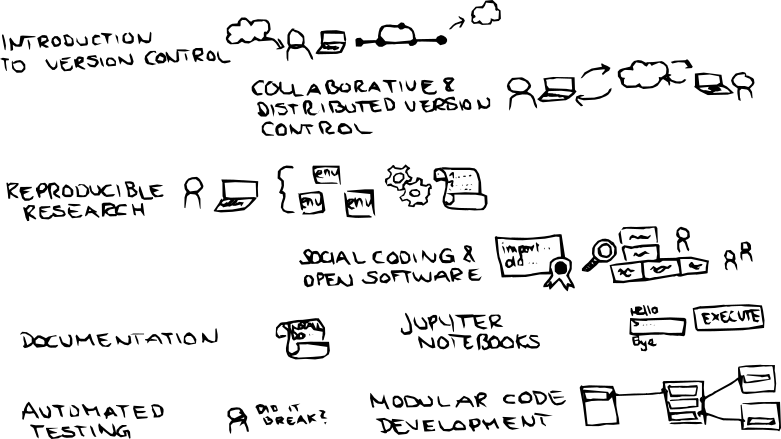 INTRODUCTION
TO VERSION CONTROL
COLLABORATIVE &
DISTRIBUTED VERSION
CONTROL
REPRODUCIBLE
RESEARCH
env
env env
SOCIAL CODING &
OPEN SOFTWARE
import...
DOCUMENTATION
JUPYTER
NOTEBOOKS
Hello
>...
Bye
EXECUTE
AUTOMATED
TESTING
DID IT
BREAK?
MODULAR CODE
DEVELOPMENT